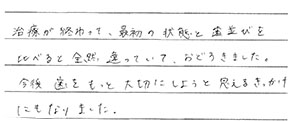 治療が終わって、最初の状態と歯並びを
比べると全然違っていて、おどろきました。
今後歯をもっと大切にしようと思えるきっかけ
にもなりました。